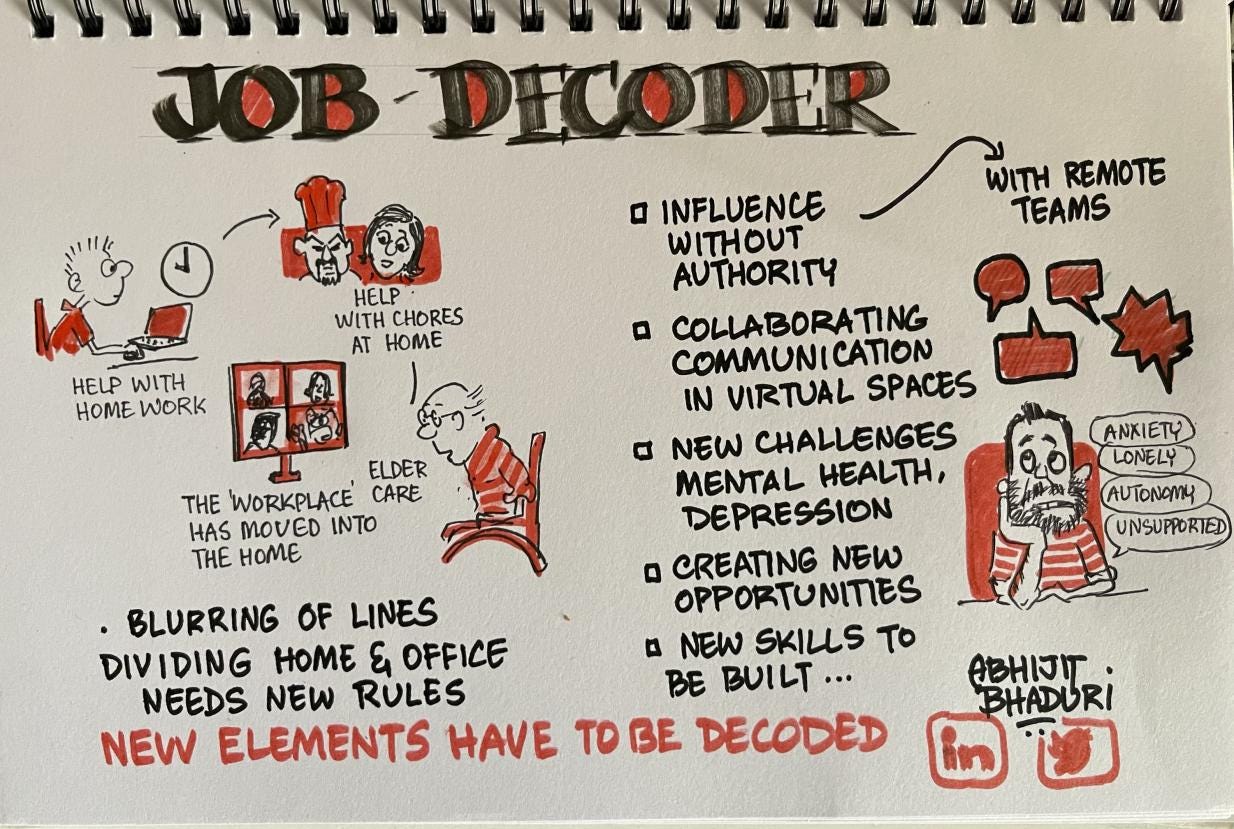 JOB - DECODER
HELP WITH
HOME WORK
HELP
WITH CHORES
AT HOME
ELDER
CARE
THE 'WORKPLACE'
HAS MOVED INTO
THE HOME
. BLURRING OF LINES
DIVIDING HOME & OFFICE
NEEDS NEW RULES
INFLUENCE
WITHOUT
AUTHORITY
WITH REMOTE
TEAMS
COLLABORATING
COMMUNICATION
IN VIRTUAL SPACES
NEW CHALLENGES
MENTAL HEALTH,
DEPRESSION
ANXIETY
LONELY
AUTONOMY
UNSUPPORTED
CREATING NEW
OPPORTUNITIES
NEW SKILLS TO
BE BUILT ...
NEW ELEMENTS HAVE TO BE DECODED
ABHIJIT
BHADURI
in